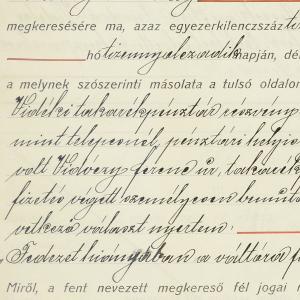 megkeresésére ma, azaz egyezerkilenczszáz
hó tizennyolczadik napján, dél
a melynek szószerinti másolata a tulsó oldalon
Vidéki takarékpénztár részvény
mint telepesnél, pénztári helyi
volt Vidovszy ferenc úr, takarék
fizetés végett személyesen bemuta
vetkező választ nyertem:
Fedezet hiányában a váltóra f
Miről, a fent nevezett megkereső fél jogai